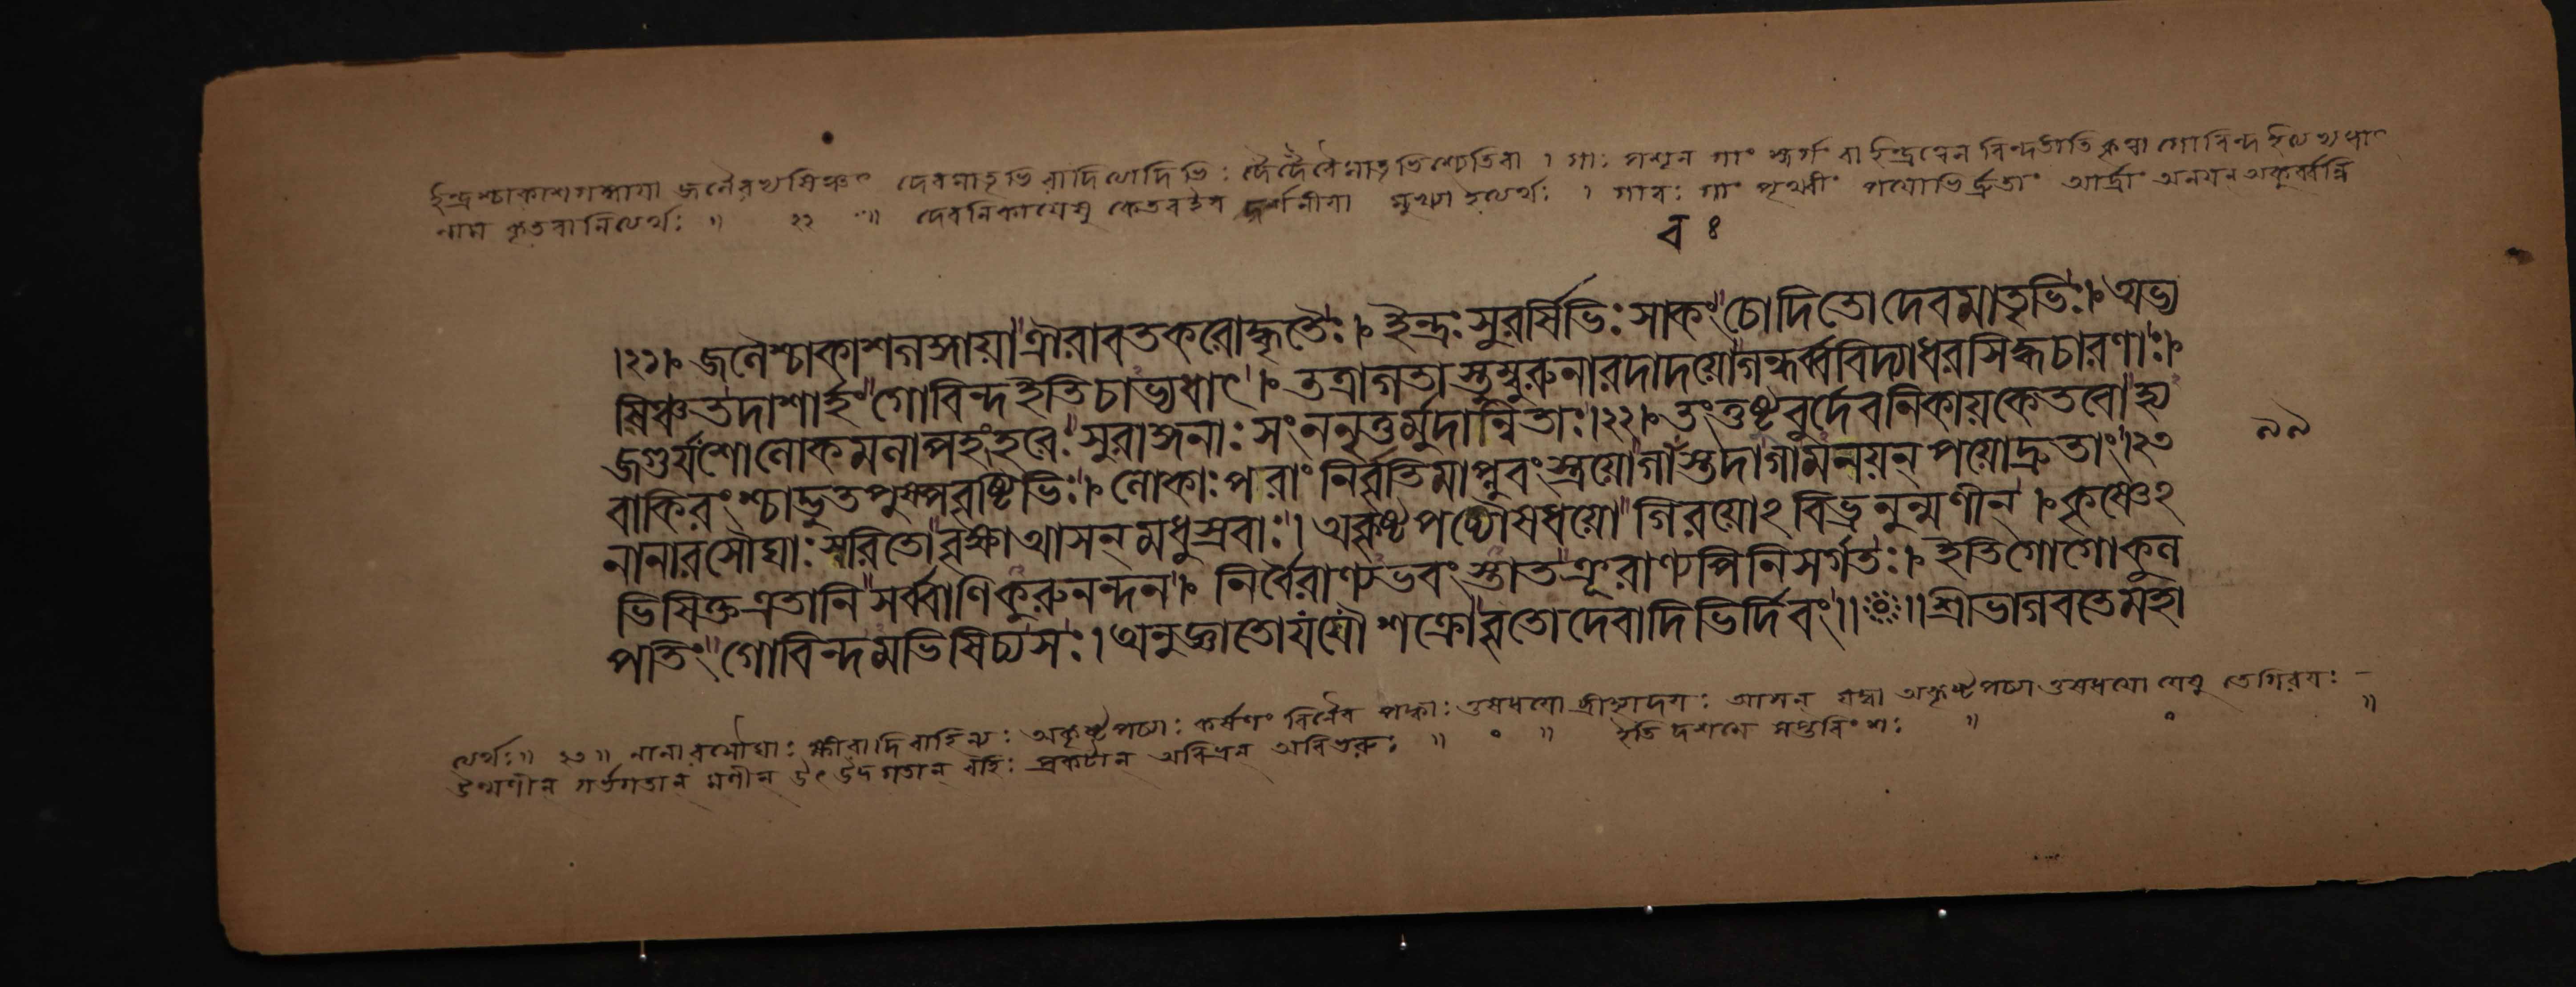 ইন্দ্রশ্চাকাশগঙ্গায়া জলৈরভ্যষিঞ্চৎ দেবমাতৃভিরাদিত্যাদিভিঃ মাতৃভিশ্চেতিবা । গাঃ পশূন্ গাং স্বর্গং বা ইন্দ্রত্বেন বিন্দতীতি কৃত্বা গোবিন্দ ইত্যভ্যধাৎ
নাম কৃতবানিত্যর্থঃ ॥ ২২ ॥ দেবনিকায়েষু কেতবইব দর্শনীয়া মুখ্যা ইত্যর্থঃ । গাবঃ গাং পৃথ্বীং পয়োভির্দ্রুতাং আর্দ্রাং অনয়ন্ অকুর্ব্বন্নি
।২১। জলৈশ্চাকাশগঙ্গায়া ঐরাবতকরোদ্ধৃতৈঃ। ইন্দ্রঃ সুরর্ষিভিঃ সাকং চোদিতো দেবমাতৃভিঃ। অভ্য
ষিঞ্চত দাশার্হং গোবিন্দ ইতি চাভ্যধাৎ। তত্রাগতাস্তুম্বুরুনারদাদয়ো গন্ধর্ব্ববিদ্যাধরসিদ্ধচারণাঃ।
জগুর্যশো লোকমলাপহং হরেঃ সুরাঙ্গনাঃ সংননৃতুর্মুদান্বিতাঃ।২২। তং তুষ্টুবুর্দেবনিকায়কেতবো হ্য
বাকিরংশ্চাদ্ভুতপুষ্পবৃষ্টিভিঃ। লোকাঃ পরাং নির্বৃতিমাপ্নুবংস্ত্রয়ো গাস্তদা গামনয়ন্ পয়োদ্রুতাং।২৩
৯৯
নানারসৌঘাঃ সরিতো বৃক্ষা আসন্ মধুস্রবাঃ। অকৃষ্টপচ্যৌষধয়ো গিরয়োঽবিভ্রনুন্মণীন্। কৃষ্ণেঽ
ভিষিক্ত এতানি সর্ব্বাণি কুরুনন্দন। নির্বৈরাণ্যভবংস্তাত ক্রূরাণ্যপি নিসর্গতঃ। ইতি গোগোকুল
পতিং গোবিন্দমভিষিচ্য সঃ। অনুজ্ঞাতো যযৌ শক্রো বৃতো দেবাদিভির্দিবং॥ ॥শ্রীভাগবতে মহা
ত্যর্থঃ॥ ২৩ ॥ নানারসৌঘাঃ ক্ষীরাদিবাহিন্যঃ অকৃষ্টপচ্যাঃ কর্ষণং বিনৈব পক্বাঃ ওষধয়ো ব্রীহ্যাদয়ঃ আসন্ যদ্বা অকৃষ্টপচ্যা ওষধয়ো যেষু তে গিরয়ঃ
উন্মণীন্ গর্ভগতান্ মণীন্ উৎ উদ্গতান্ বহিঃ প্রকটান্ অবিভ্রন্ অবিভরুঃ ॥ ॰ ॥ ইতি দশমে সপ্তবিংশঃ ॥ ॰ ॥